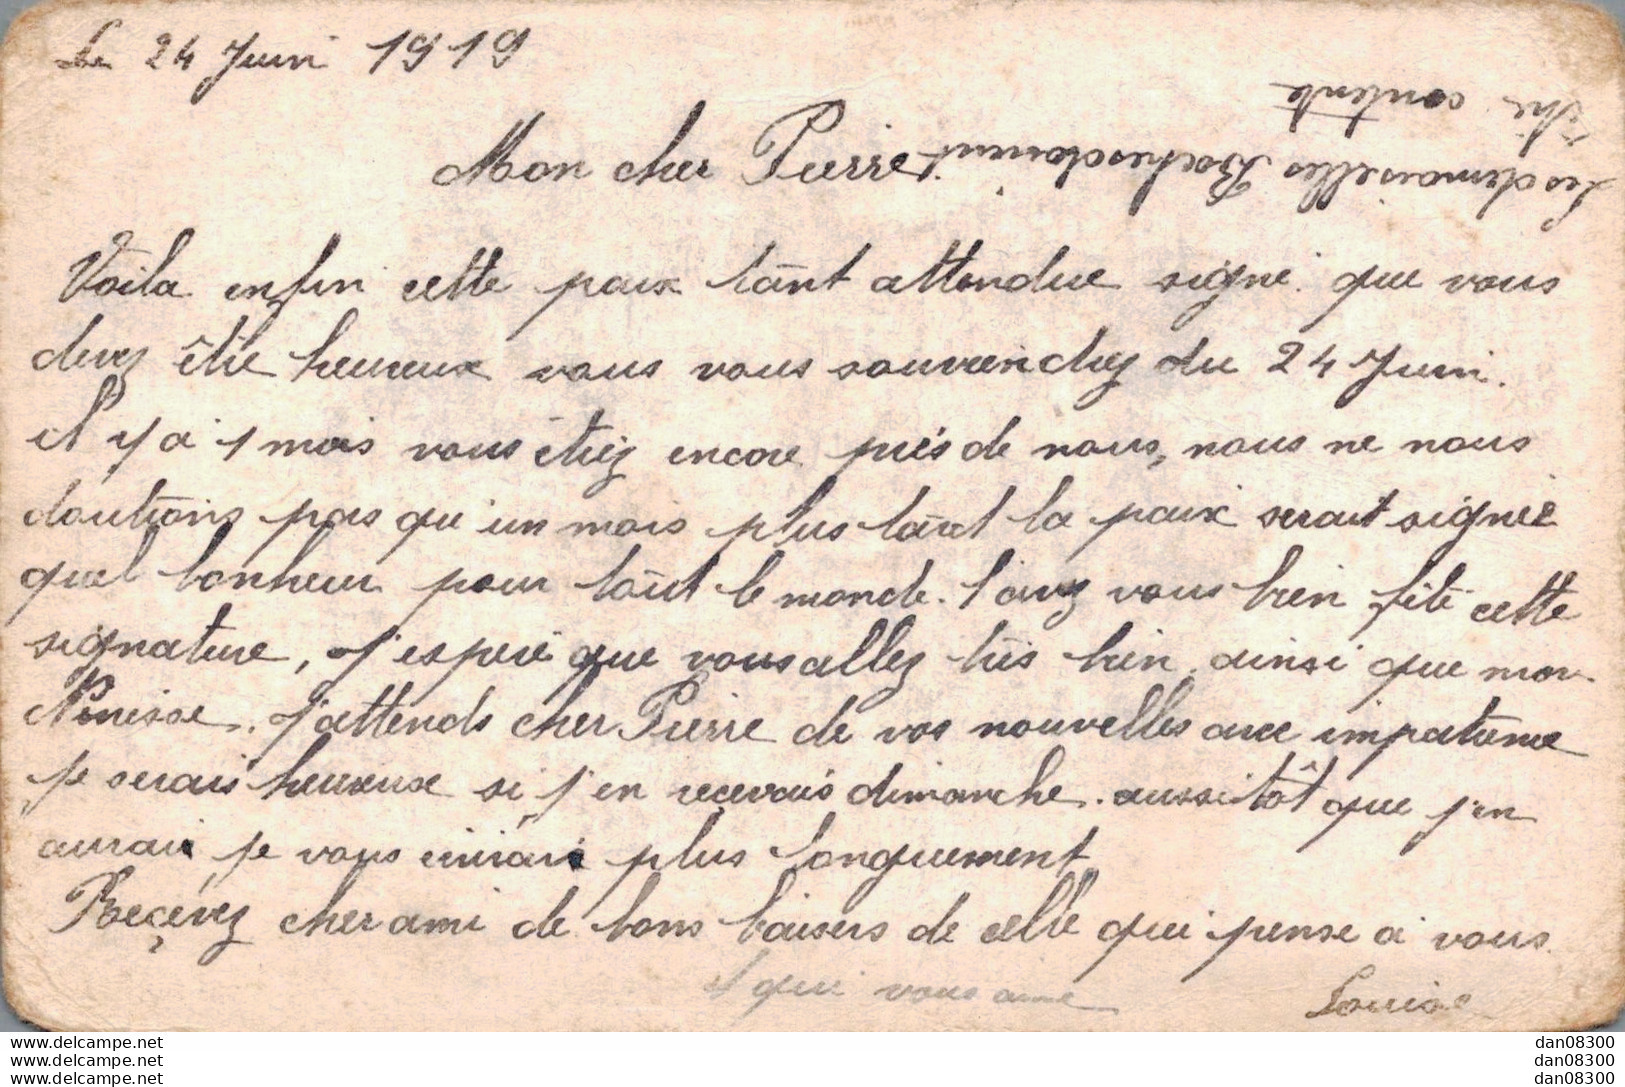 Le 24 Juin 1919
Mon cher Pierre.
Les demoiselles Boches doivent
être contente
Voila enfin cette paix tant attendue signé. que vous
devez être heureux vous vous souviendrez du 24 Juin.
il y a 1 mois vous étiez encore près de nous, nous ne nous
doutions pas qu'un mois plus tard la paix serait signée
quel bonheur pour tout le monde. l'avez vous bien fêté cette
signature, J'espere que vous allez très bien, ainsi que mon
J'attends cher Pierre de vos nouvelles avec impatience
je serais heureuse si j'en reçevais dimanche. aussitôt que j'en
aurais je vous écrirais plus longuement
Reçevez cher ami de bons baisers de celle qui pense a vous.
et qui vous aime
Louise
www.delcampe.net
www.delcampe.net
www.delcampe.net
dan08300
dan08300
dan08300